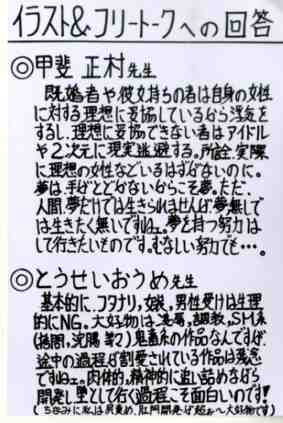 イラスト&フリートークへの回答
◎甲斐 正村先生
既婚者や彼女持ちの者は自身の女性
に対する理想に妥協しているから浮気を
するし、理想に妥協できない者はアイドル
や2次元に現実逃避する。所詮、実際
に理想の女性などいるはずがないのに。
夢は、手がとどかないからこそ夢。ただ、
人間、夢だけでは生きられませんが夢無しで
は生きたく無いですねェ。夢を持つ努力は
して行きたいものです。むなしい努力でも…。
◎とうせいおうめ先生
基本的に、フタナリ、女装、男性受けは生理
的にNG。大好物は、凌辱、調教、SM系
(拷問、浣腸、等々)鬼畜系の作品なんですが、
途中の過程が割愛されている作品は残念
ですねェ。肉体的、精神的に追い詰めながら
開発し堕として行く過程こそ面白いのです!
(ちなみに私は尻責め、肛門開発が超ぉ〜大好物です)